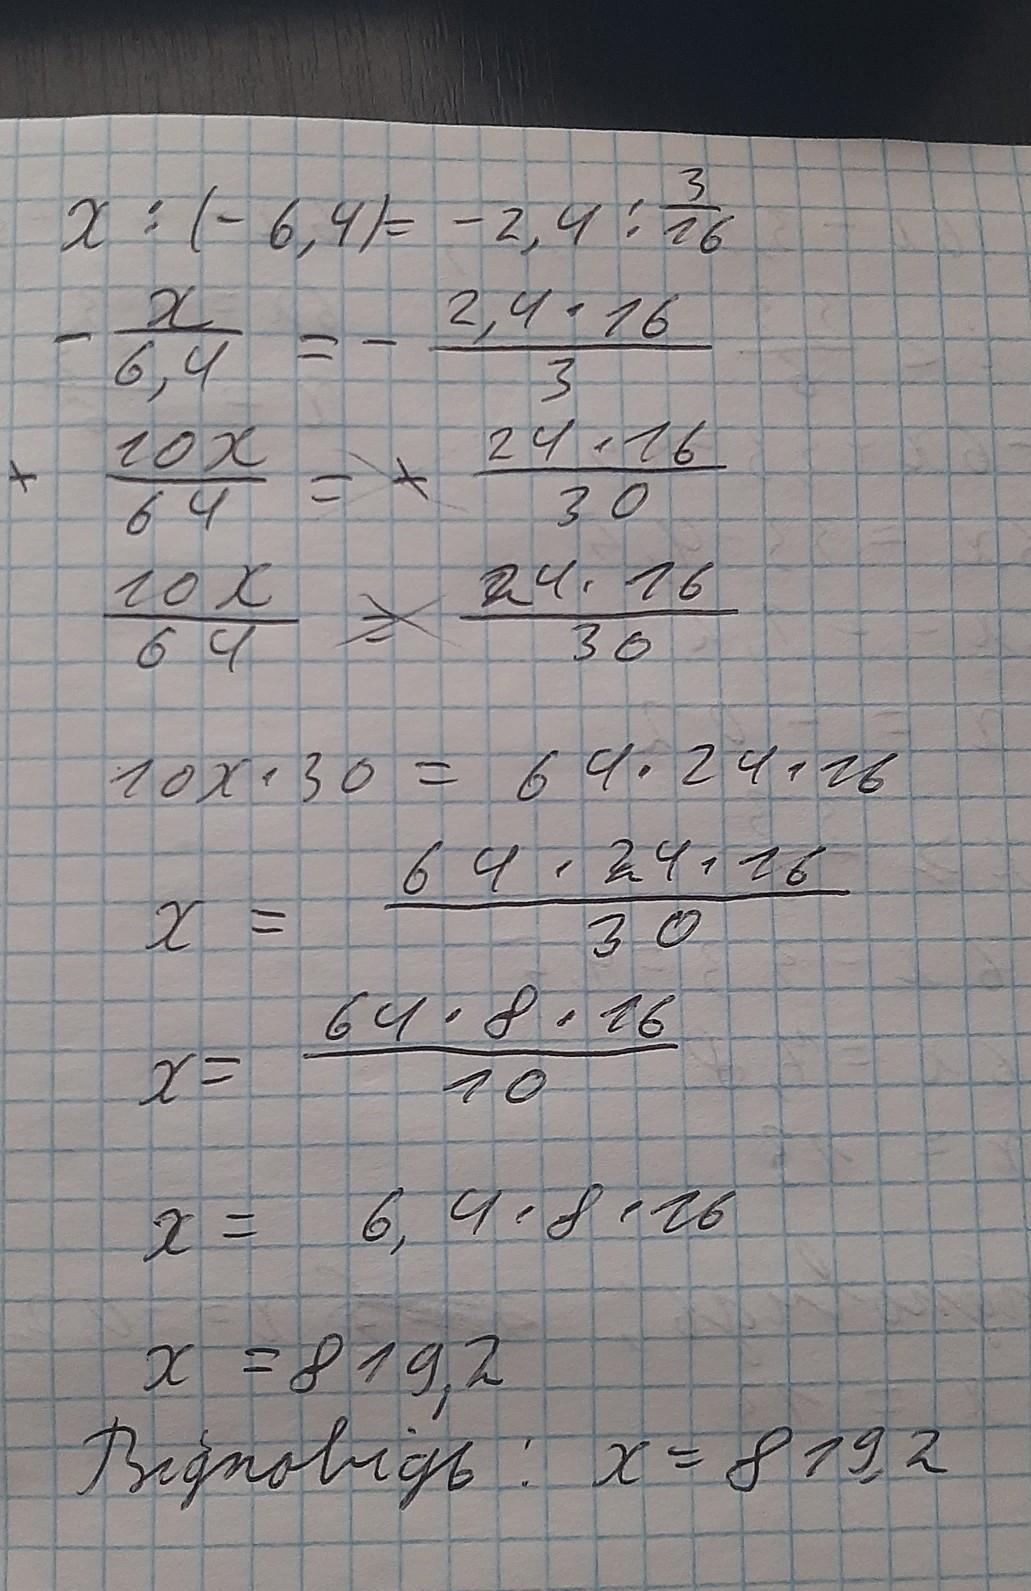 x : (-6,4) = -2,4 : 3/16
- x/6,4 = - 2,4 · 16/3
+ 10x/64 = + 24 · 16/30
10x/64 = 24 · 16/30
10x · 30 = 64 · 24 · 16
x = 64 · 24 · 16/30
x = 64 · 8 · 16/10
x = 6,4 · 8 · 16
x = 819,2
Відповідь : x = 819,2